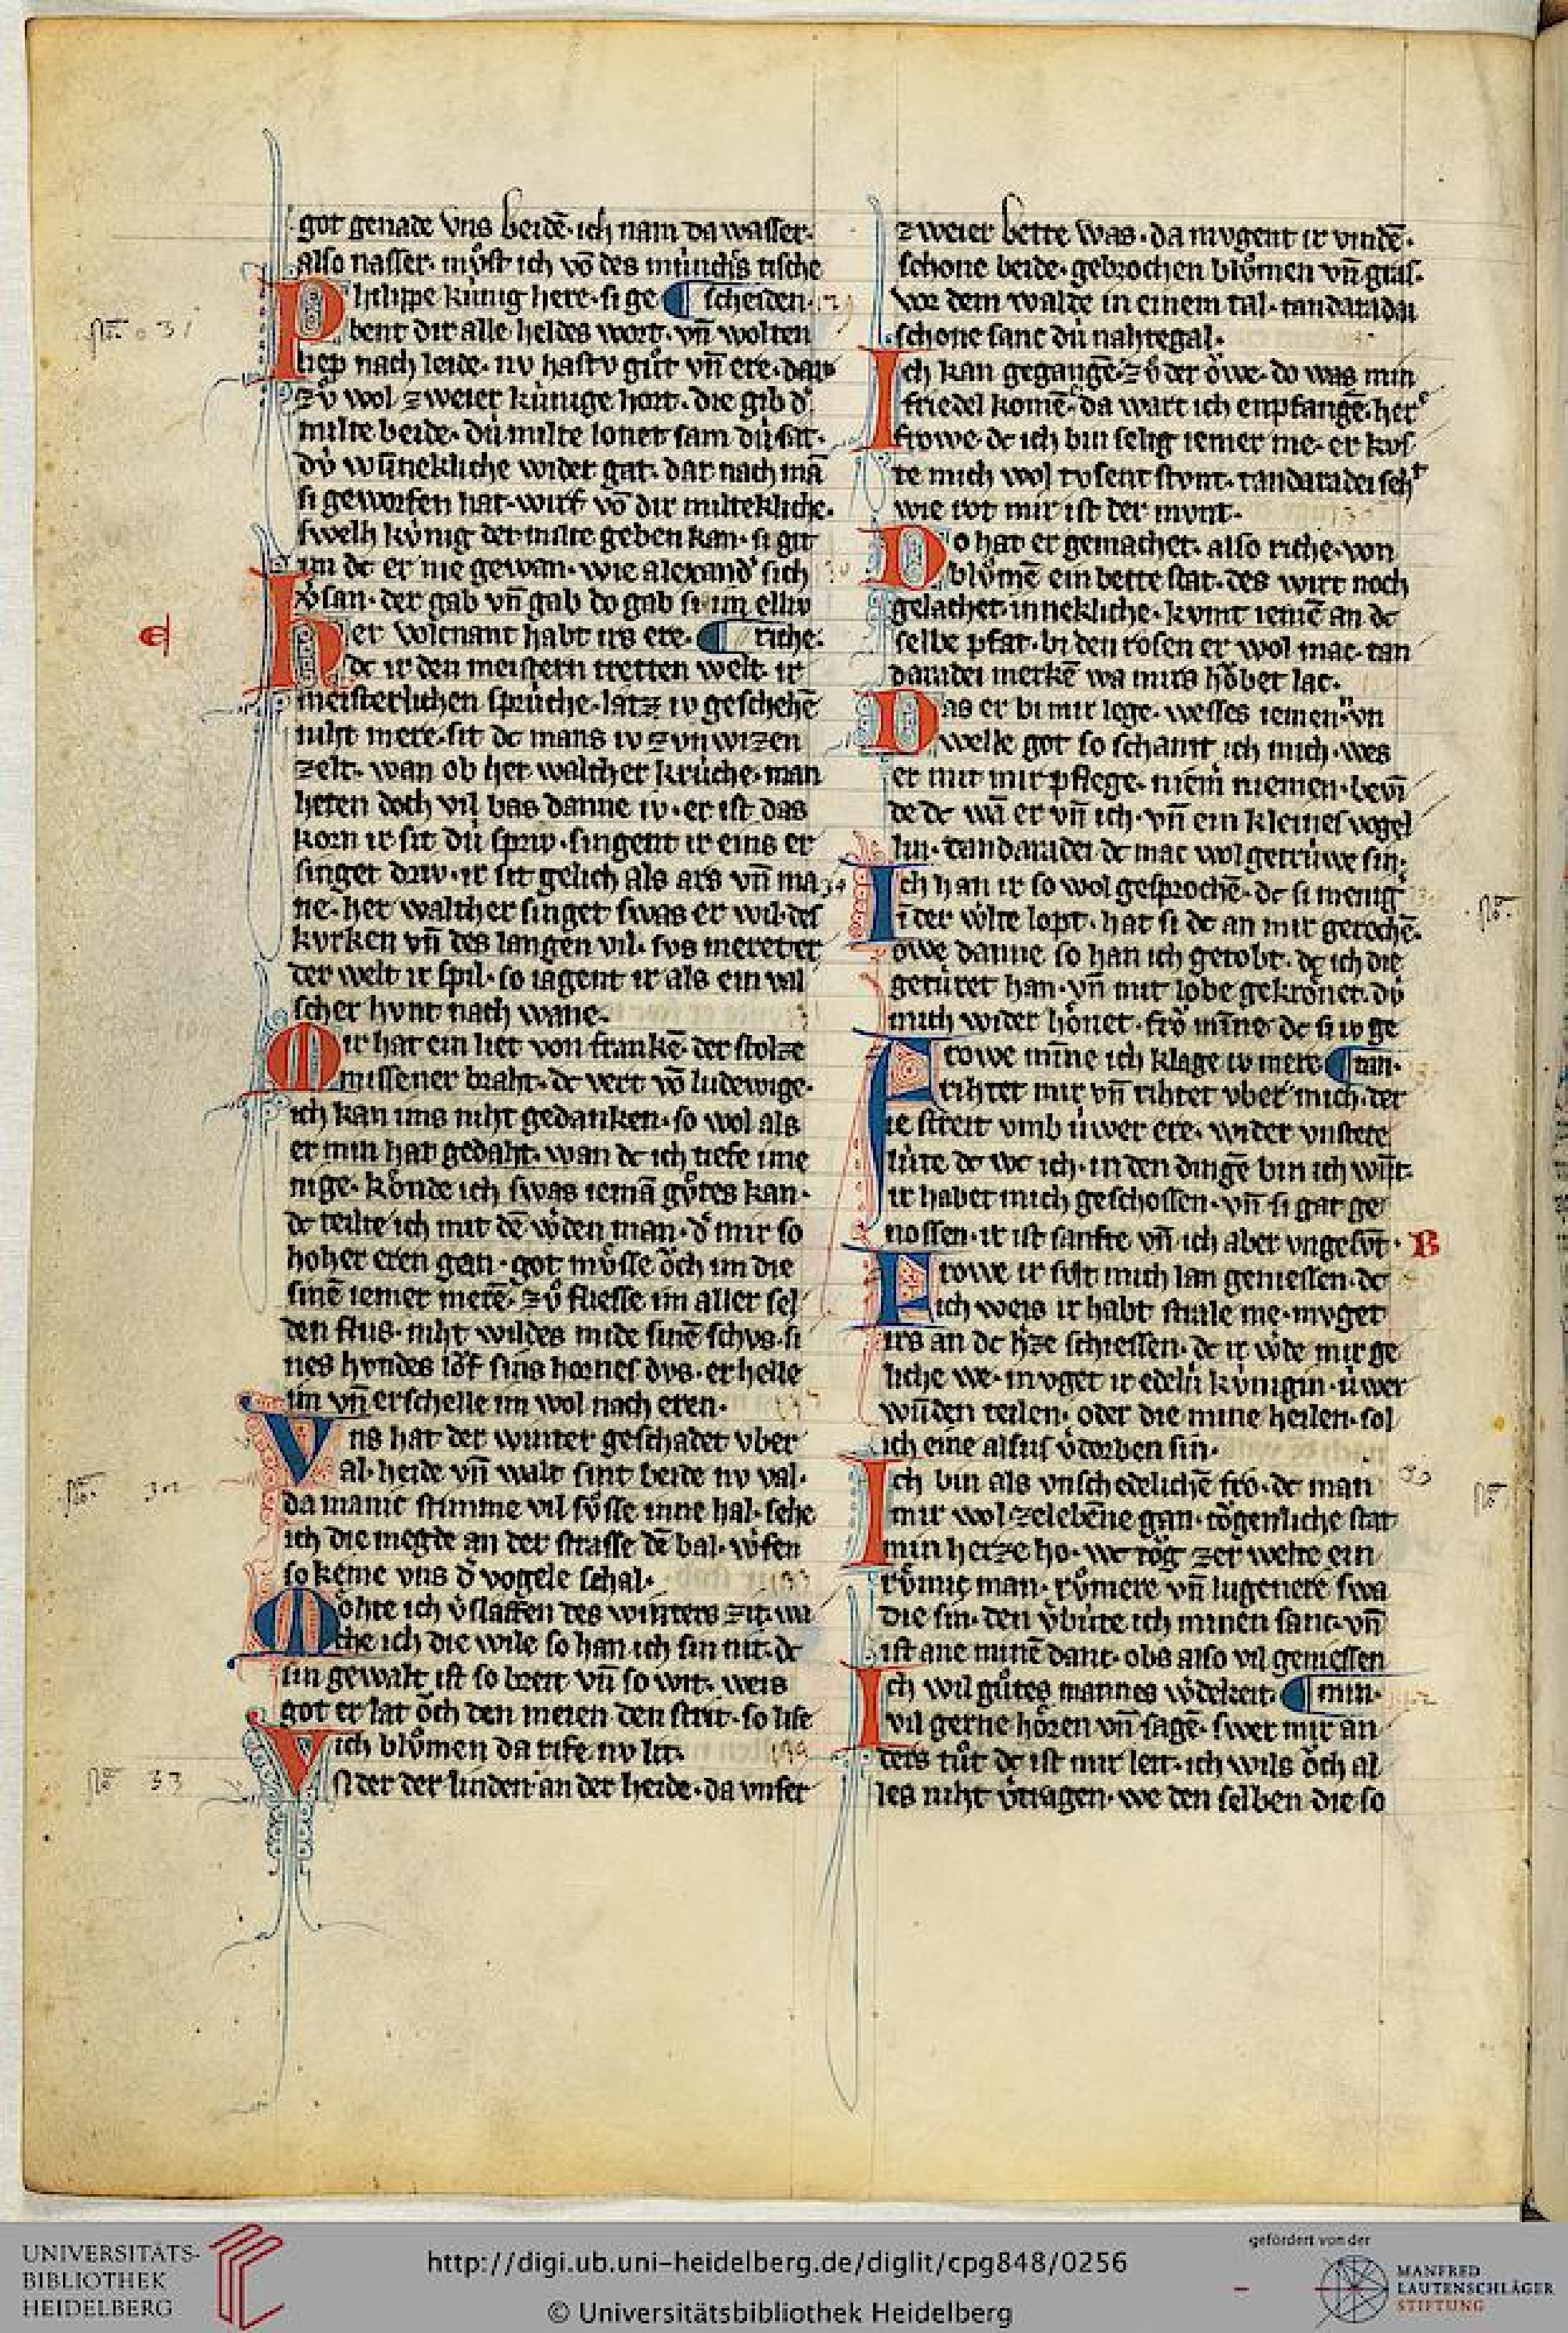 got genade vns beidē· ich nam da wasser·
also nasser· mv̊st ich vō des münchs tische
Philippe künig here· si ge ¶ scheiden·
bent dir alle heldes wort· vn̄ wolten
liep nach leide· nv hastv gůt vn̄ ere· daʒ
zv̊ wol zweier künige hort· die gib d'
milte beide· dü milte lonet sam dü sat·
dü wūnekliche wider gat· dar nach mā
si geworfen hat· wirf vō dir miltekliche·
swelh kv̇nig der milte geben kan· si git
im dc er nie gewan· wie alexand' sich
v'san· der gab vn̄ gab do gab si im ellv
her volcnant habt irs ere· ¶ riche·
dc ir den meistern tretten welt· ir
meisterlichen sprüche· latz iv geschehē
niht mere· sit dc mans iv zvn wizen
zelt· wan ob her walther krüche· man
heten doch vil bas danne iv· er ist das
korn ir sit dü spriv· singent ir eins er
singet driv· ir sit gelich als ars vn̄ ma
ne· her walther singet swas er wil· des
kvrken vn̄ des langen vil· svs meret er
der welt ir spil· so iagent ir als ein val
scher hvnt nach wane·
Mir hat ein liet von frankē· der stolze
missener braht· dc vert vō ludewige·
ich kan ims niht gedanken· so wol als
er min hat gedaht· wan dc ich tiefe ime
nige· kônde ich swas iemā gůtes kan·
dc teilte ich mit dē w'den man· d' mir so
hoher eren gan· got mv̊sse ȯch im die
sinē iemer merē· zv̊ fliesse im aller sel
den flus· niht wildes mide sinē schvs· si
nes hvndes lȯf sins hornes dvs· er helle
im vn̄ erschelle im wol nach eren·
Vns hat der winter geschadet vber
al· heide vn̄ walt sint beide nv val·
da manic stimme vil sv̊sse inne hal· sehe
ich die megde an der strasse dē bal· w'fen
so keme vns d' vogele schal·
Môhte ich v'slaffen des winters zit· wa
che ich die wile so han ich sin nit· dc
sin gewalt ist so breit vn̄ so wit· weis
got er lat ȯch den meien den strit· so lise
ich blůmen da rife nv lit·
Vnder der linden an der heide· da vnser
zweier bette was· da mvgent ir vindē·
schone beide· gebrochen blůmen vn̄ gras·
vor dem walde in einem tal· tandaradai
schone sanc dü nahtegal·
Ich kan gegangē· zv̊ der ȯwe· do was min
friedel komē· da wart ich enpfangē· here
frowe· dc ich bin selig iemer me· er kus
te mich wol tvsent stvnt· tandaradei seht
wie rot mir ist der mvnt·
Do hat er gemachet· also riche· von
blůmē ein bette stat· des wirt noch
gelachet· innekliche· kvmt iemē an dc
selbe pfat· bi den rosen er wol mac· tan
daradei merkē wa mirs hôbet lac·
Das er bi mir lege· wesses iemen· vn
welle got so schamt ich mich· wes
er mit mir pflege· niem̄ niemen· bevī
de dc wā er vn̄ ich· vn̄ ein kleines vogel
lin· tandaradei dc mac wol getrüwe sin·
Ich han ir so wol gesprochē· dc si menig
ī der w'lte lopt· hat si dc an mir gerochē·
owe danne so han ich getobt· dc ich die
getüret han· vn̄ mit lobe gekrônet· dü
mich wider hônet· frȯ mīne dc si iv ge
Frowe mīne ich klage iv mere ¶ tan·
rihtet mir vn̄ rihtet vber mich· der
ie streit vmb üwer ere· wider vnstete
lüte dc wc ich· in den dingē bin ich wūt·
ir habet mich geschossen· vn̄ si gat ge
nossen· ir ist sanfte vn̄ ich aber vngesūt·
Frowe ir sult mich lan geniessen· dc
ich weis ir habt strale me· mvget
irs an dc h'ze schiessen· dc ir w'de mir ge
liche we· mvget ir edelü künigin· üwer
wūden teilen· oder die mine heilen· sol
ich eine alsus v'dorben sin·
Ich bin als vnschedelichē fro· dc man
mir wol zelebēne gan· tȯgenliche stat
min herze ho· wc tȯg zer welte ein
rv̊mic man· rv̊mere vn̄ lugenere swa
die sin· den v'büte ich minen sanc· vn̄
ist ane minē danc· obs also vil geniessen
Ich wil gůtes mannes w'dekeit· ¶ min·
vil gerne hôren vn̄ sagē· swer mir an
ders tůt dc ist mir leit· ich wils ȯch al
les niht v'tragen· we den selben die so
UNIVERSITÄTS-
BIBLIOTHEK
HEIDELBERG
http://digi.ub.uni-heidelberg.de/diglit/cpg848/0256
© Universitätsbibliothek Heidelberg
gefördert von der
MANFRED
LAUTENSCHLÄGER
STIFTUNG